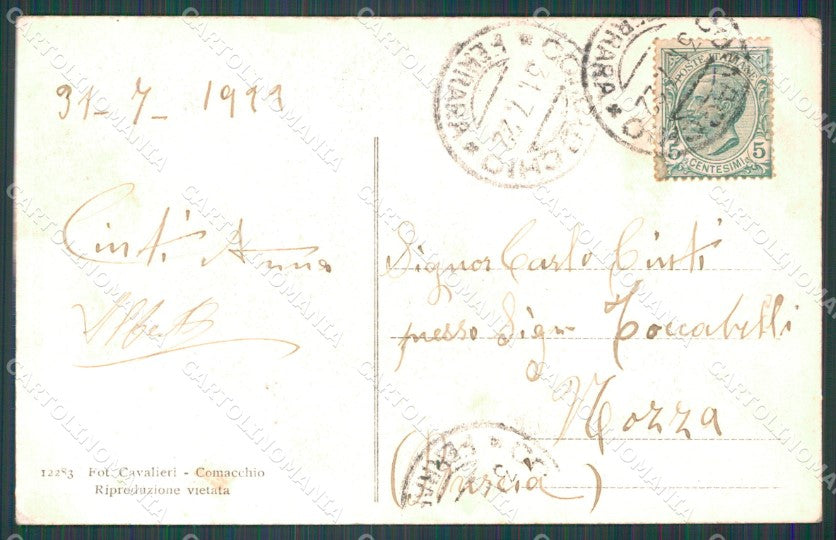 31- 7_ 1911
Cinti Anna
12283 Fot. Cavalieri - Comacchio
Riproduzione vietata
COMACCHIO
* FERRARA *
POSTE ITALIANE
5 CENTESIMI 5
Signor Carlo Cinti
presso Sigr Toccabelli
a
Mozza
CARTOLINOMANIA